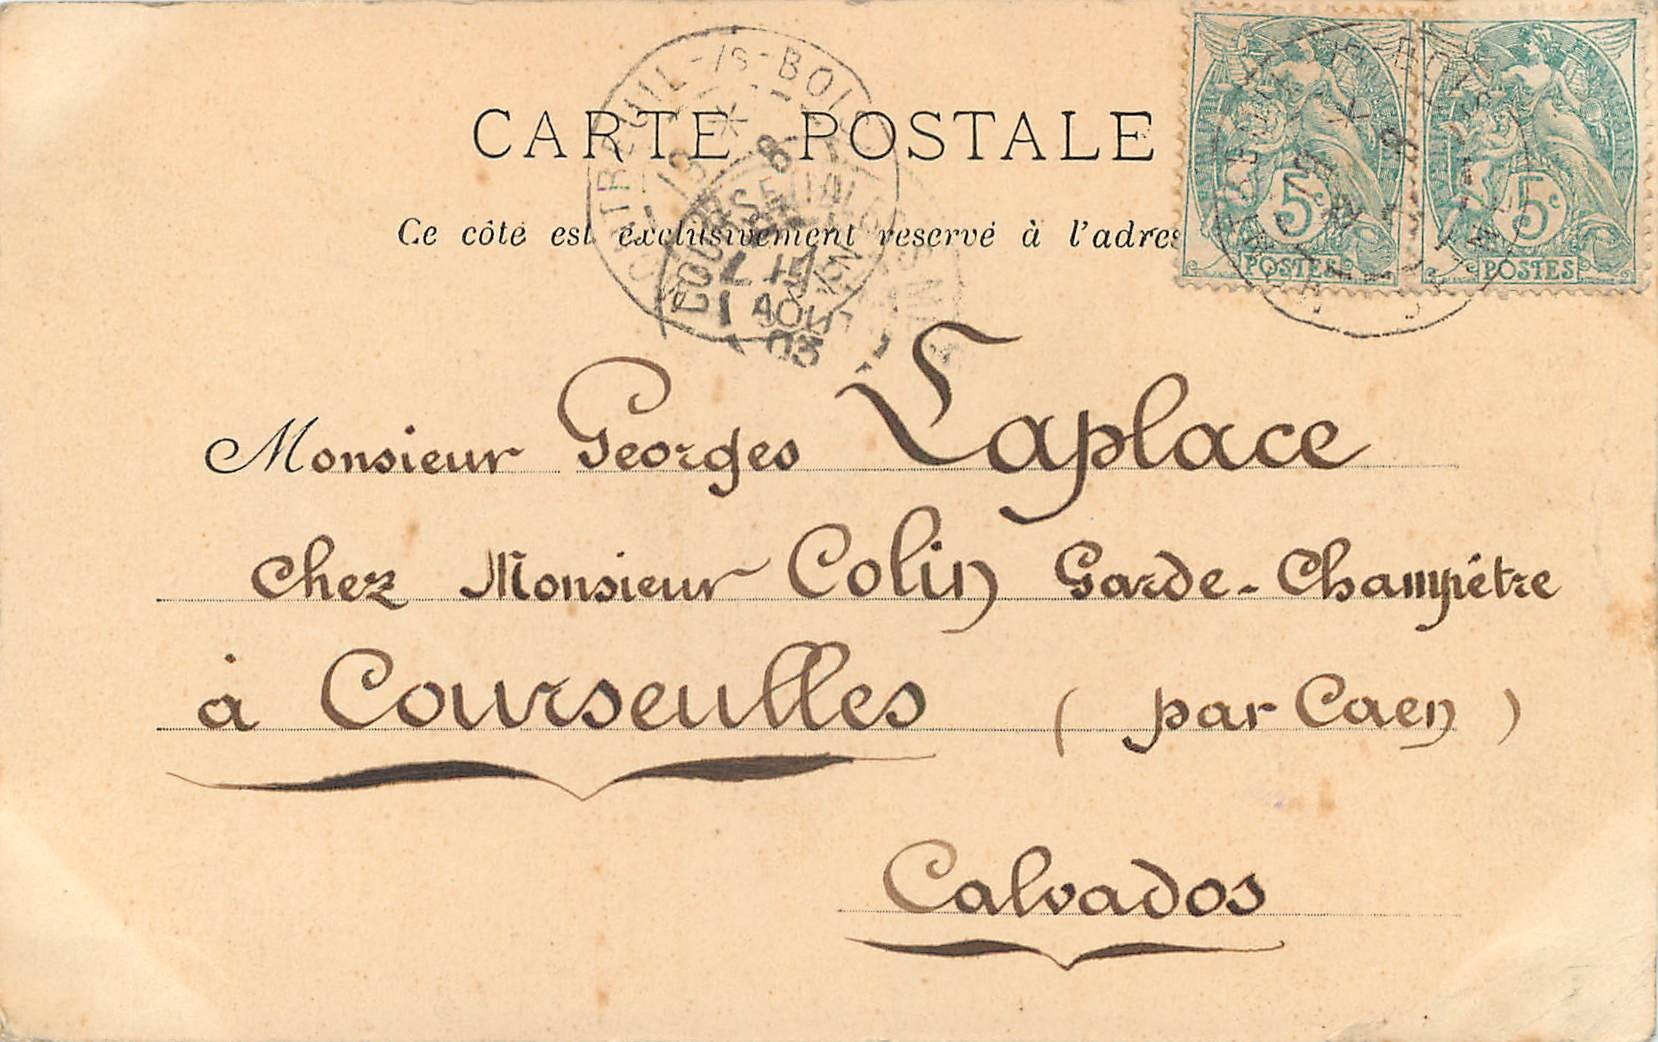 CARTE POSTALE
Ce côté est exclusivement réservé à l'adres
5c
POSTES
5c
POSTES
AOUT
03
Monsieur Georges Laplace
Chez Monsieur Colin Garde-Champêtre
à Courseulles (par Caen)
Calvados